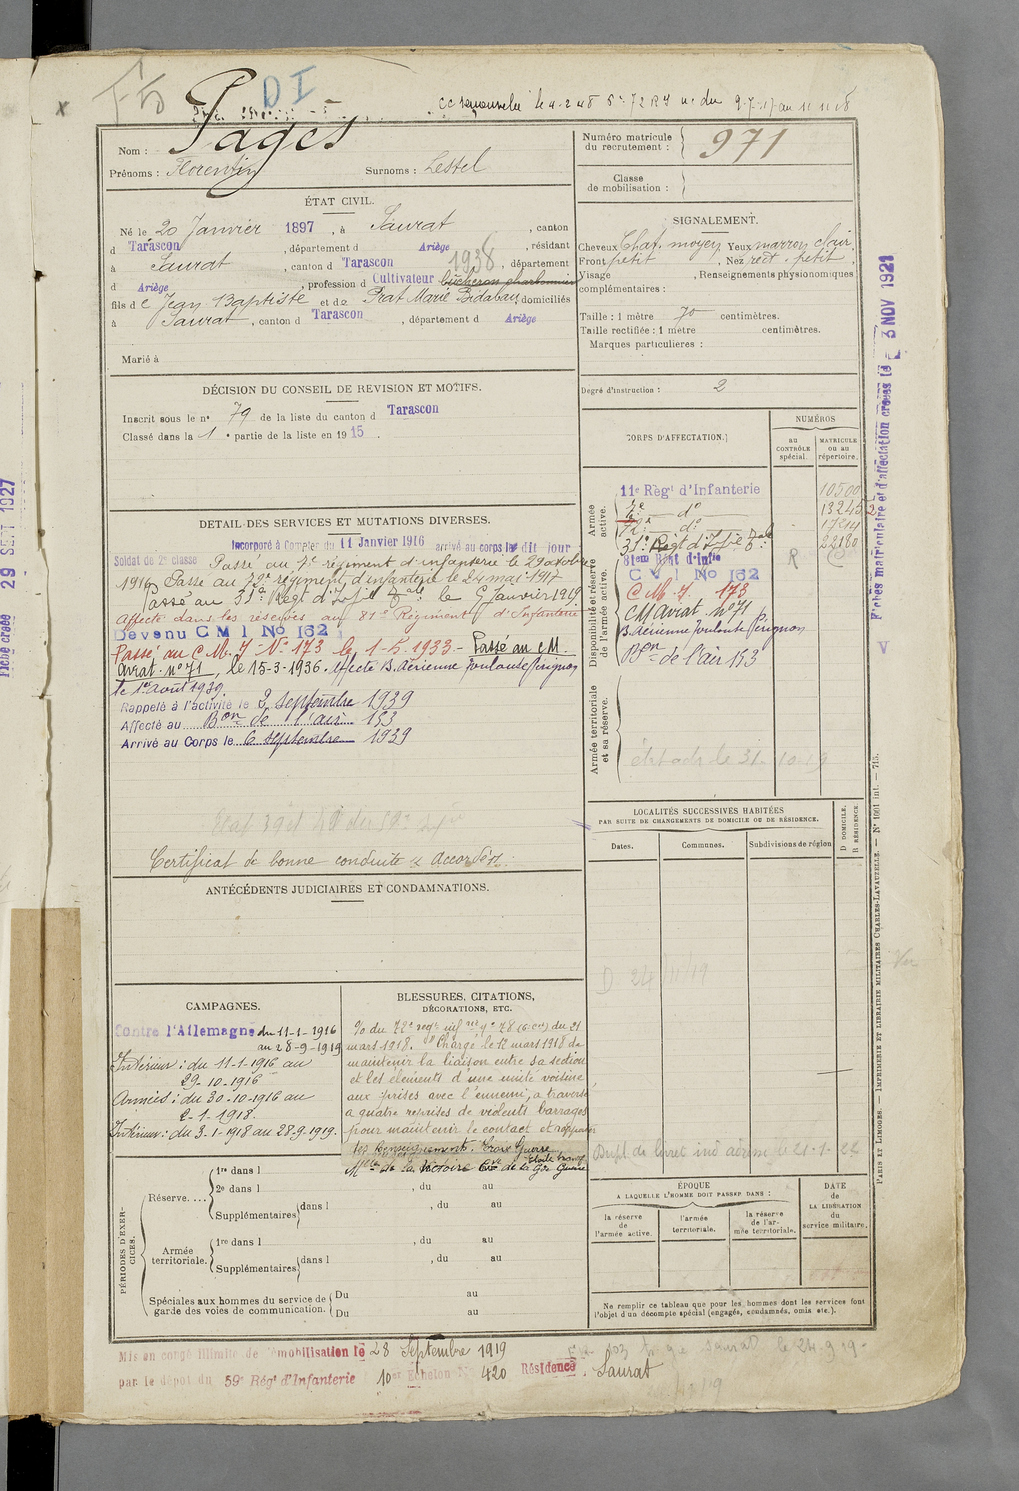 D I
Pagès
Nom :
Prénoms : Florentin Surnoms : Lestel
Numéro matricule du recrutement : 971
Classe de mobilisation :
ÉTAT CIVIL.
Né le 20 Janvier 1897, à Saurat, canton
d Tarascon, département d Ariège, résidant
à Saurat, canton d Tarascon, département
1938
d Ariège, profession d Cultivateur bûcheron charbonnier
fils de Jean Baptiste et de Prat Marie Bidabau, domiciliés
à Saurat, canton d Tarascon, département d Ariège
Marié à
SIGNALEMENT.
Cheveux Chat. moyen Yeux marron clair
Front petit, Nez rect. petit,
Visage , Renseignements physionomiques
complémentaires :
Taille : 1 mètre 70 centimètres.
Taille rectifiée : 1 mètre centimètres.
Marques particulières :
Degré d'instruction : 2
DÉCISION DU CONSEIL DE REVISION ET MOTIFS.
Inscrit sous le n° 79 de la liste du canton d Tarascon
Classé dans la 1e partie de la liste en 1915.
CORPS D'AFFECTATION.
NUMÉROS
au CONTRÔLE spécial.
MATRICULE ou au répertoire.
Armée active.
11e Régt d'Infanterie 10500
7e do 13245
72e do
31e Régt d'Infie Cale 22180
Disponibilité et réserve de l'armée active.
81eme Régt d'Infie
C M I No 162
C M. I. 173
CM Avrat. n°71
B. Aérienne Toulouse Pérignon
Bon de l'air 153
Armée territoriale et sa réserve.
DÉTAIL DES SERVICES ET MUTATIONS DIVERSES.
Incorporé à Compter du 11 Janvier 1916 arrivé au corps le dit jour
Soldat de 2e classe Passé au 7e régiment d'infanterie le 29 octobre
1916. Passé au 72e régiment d'infanterie le 24 mai 1917
Passé au 31e Régt d'Infie Cale le 9 Janvier 1919
Affecté dans les réserves au 81e Régiment d'Infanterie
Devenu C M I No 162
Passé au C.M. I N° 173 le 1-5-1933 - Passé au CM.
Avrat. n°71, le 15-3-1936. Affecté B. Aérienne Toulouse Pérignon
le 1er Août 1939.
Rappelé à l'activité le 2 septembre 1939
Affecté au Bon de l'air 153
Arrivé au Corps le 6 septembre 1939
Certificat de bonne conduite « Accordé »
ANTÉCÉDENTS JUDICIAIRES ET CONDAMNATIONS.
LOCALITÉS SUCCESSIVES HABITÉES
PAR SUITE DE CHANGEMENTS DE DOMICILE OU DE RÉSIDENCE.
Dates. Communes. Subdivisions de région
D DOMICILE. R RÉSIDENCE.
D 24/11/19
CAMPAGNES.
Contre l'Allemagne du 11-1-1916
au 28-9-1919
Intérieur : du 11-1-1916 au
29-10-1916
Armées : du 30-10-1916 au
2-1-1918.
Intérieur : du 3-1-1918 au 28-9-1919.
BLESSURES, CITATIONS,
DÉCORATIONS, ETC.
du 21
mars 1918. "Chargé le 12 mars 1918 de
maintenir la liaison entre sa section
et les éléments d'une unité voisine
aux prises avec l'ennemi, a traversé
à quatre reprises de violents barrages
pour maintenir le contact et rapporter
des renseignements. Croix Guerre
étoile bronze
Mlle de la Victoire Cve de la Gde Guerre
PÉRIODES D'EXERCICES.
Réserve....
1re dans l
2e dans l , du au
Supplémentaires dans l , du au
Armée territoriale.
1re dans l , du au
Supplémentaires dans l , du au
Spéciales aux hommes du service de garde des voies de communication.
Du au
Du au
Dupl. de livret ind adressé le 21-1-22
ÉPOQUE
A LAQUELLE L'HOMME DOIT PASSER DANS :
la réserve de l'armée active.
l'armée territoriale.
la réserve de l'armée territoriale.
DATE
DE LA LIBÉRATION du service militaire.
Ne remplir ce tableau que pour les hommes dont les services font l'objet d'un décompte spécial (engagés, condamnés, omis etc.).
Mis en congé illimité de démobilisation le 28 Septembre 1919
par le dépôt du 59e Régt d'Infanterie 10er Echelon N° 420 Résidence Saurat
Fiches matriculaire et d'affectation créées le 3 NOV 1921
V
PARIS ET LIMOGES. — IMPRIMERIE ET LIBRAIRIE MILITAIRES CHARLES-LAVAUZELLE. — N° 1001 int. — 715.
Fiche créée 29 SEPT 1927